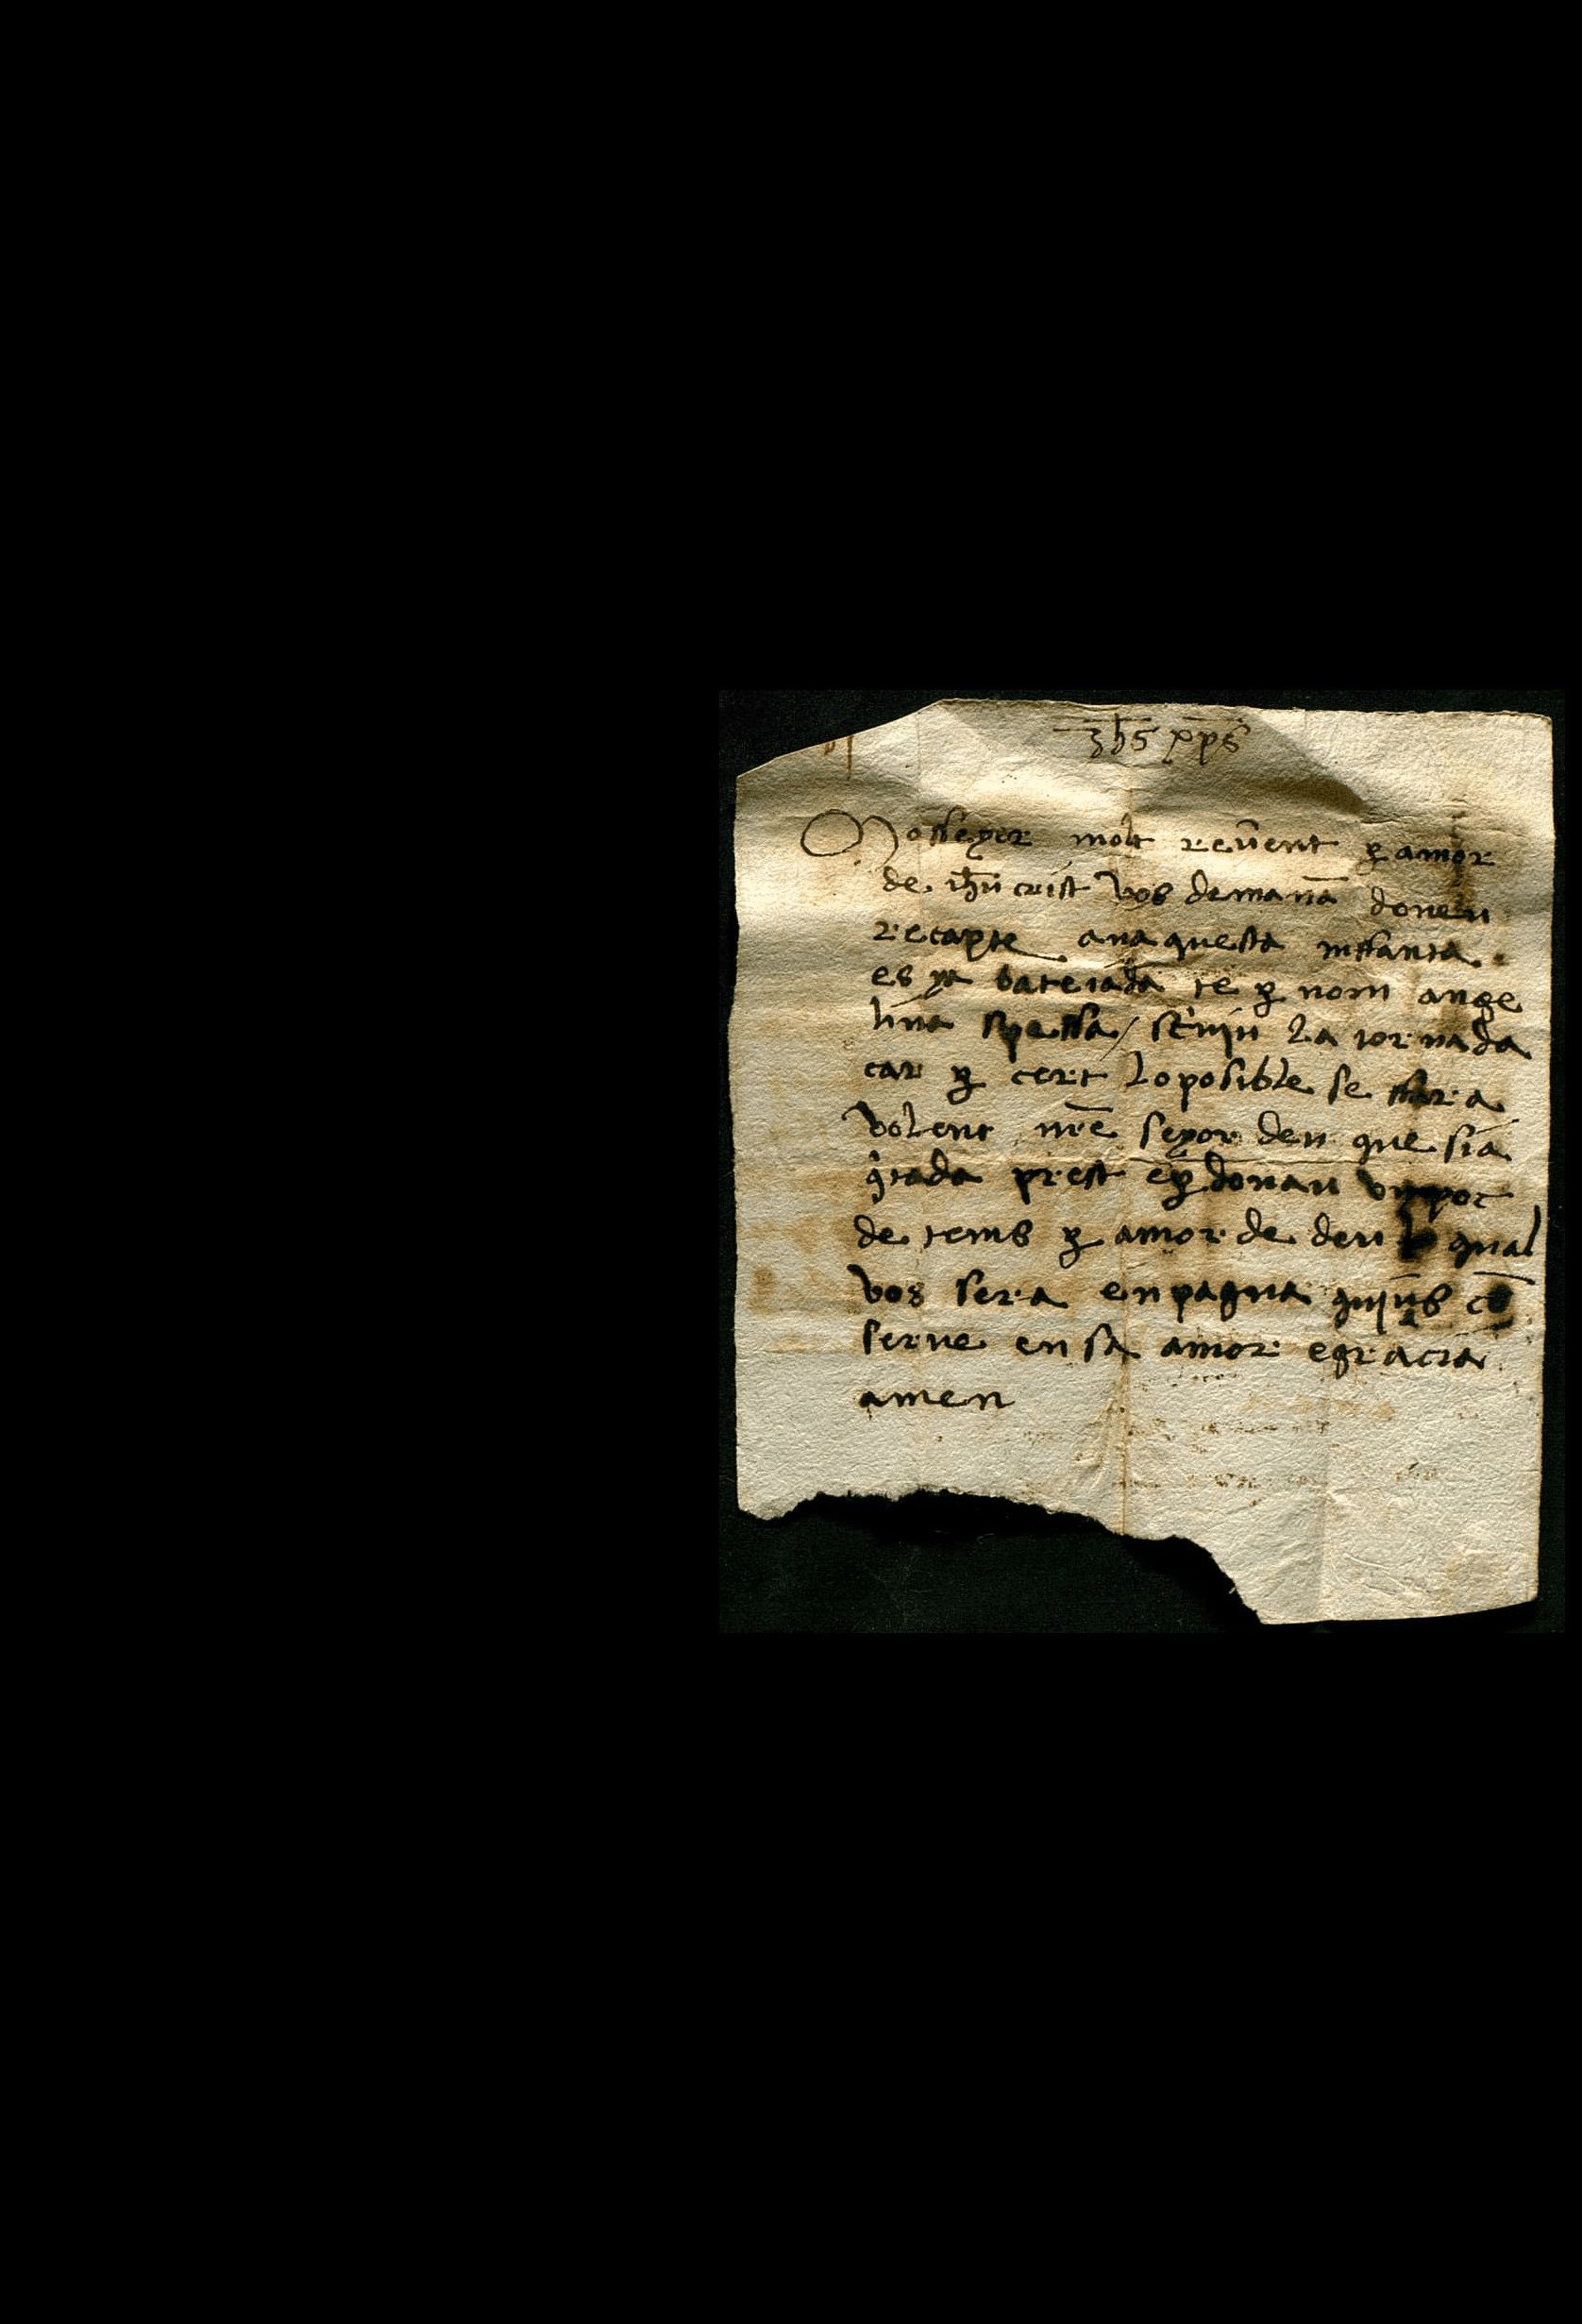 Jhs xps
Mosseyer molt reuent p amor
de ihu crist vos demana doneu
recapte ana questa inffanta
es ya bateiada te p nom ange
lina spessa / la iornada
car p cert lo posible se ffara
volent nre seyor deu que sia
prest e p donau un poc
de tems p amor de deu lo qual
vos sera en pagua co
serue en sa amor e gracia
amen